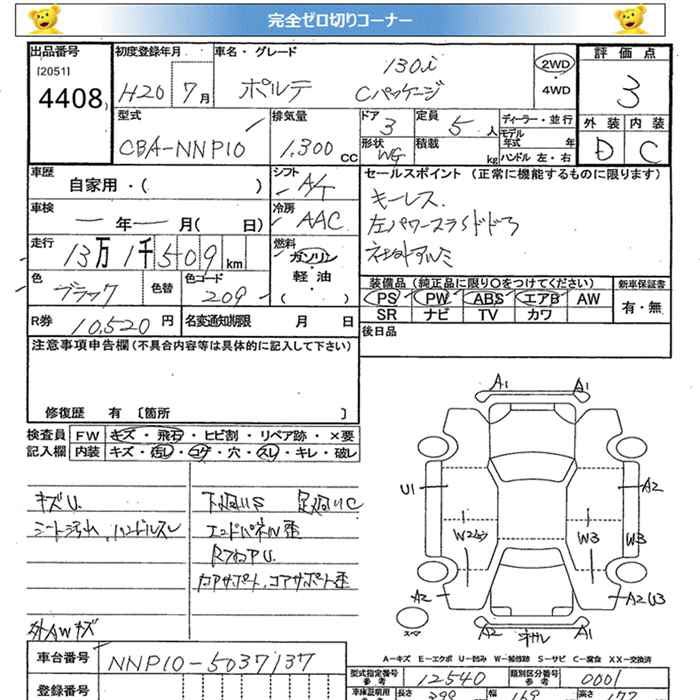 完全ゼロ切りコーナー
出品番号
[2051]
4408
初度登録年月
H20 7月
車名・グレード
ポルテ
130i
Cパッケージ
2WD
・
4WD
評価点
3
外装 内装
D C
型式
CBA-NNP10
排気量
1,300 cc
ドア
3
定員
5 人
形状
WG
積載
kg
ディーラー・並行
モデル
年式 年
ハンドル 左・右
車歴
自家用・( )
シフト
A/T
車検
年 月( 日)
冷房
AAC
走行
13万1千509km
燃料
ガソリン
・
軽油
・
( )
色
ブラック
色替
色コード
209
R券
10,520円
名変通知期限 月 日
セールスポイント(正常に機能するものに限ります)
キーレス
左パワースライドドア
社外アルミ
装備品(純正品に限り○をつけてください)
PS PW ABS エアB AW
SR ナビ TV カワ
新車保証書
有・無
後日品
注意事項申告欄(不具合内容等は具体的に記入して下さい)
修復歴 有 [箇所 ]
検査員
記入欄
FW キズ・飛石・ヒビ割・リペア跡・×要
内装 キズ・汚し・コゲ・穴・スレ・キレ・破レ
キズU.
シート汚れ、ハンドルスレ
下廻りS 足廻りC
エンドパネル歪
RフロアU.
コアサポート歪
外AWキズ
A1 A1
U1 A2
W3 W3
A2 A2 U3
スペア
A2 A1
A-キズ E-エクボ U-凹み W-補修跡 S-サビ C-腐食 XX-交換済
車台番号
NNP10-5037137
登録番号
型式指定番号
参考
12540
類別区分番号
参考
0001
車庫証明用
長さ
399
幅
高さ